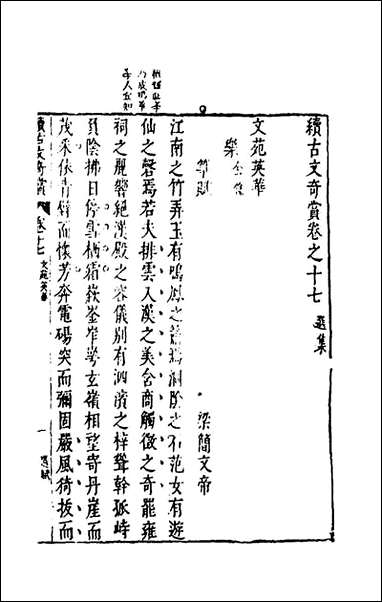 續古文奇賞卷之十七 選集
文苑英華
樂
箏賦 梁簡文帝
江南之竹弄玉有鳴鳳之簫焉洞陰之石范女有遊
仙之磬焉若夫排雲入漢之美含商觸徵之奇罷雍
祠之麗響絕漢殿之容儀別有泗濱之梓聳幹孤峙
負陰拂日停雪栖霜嶔崟岞崿玄嶺相望寄丹崖而
茂采依青壁而懷芳奔電碭突而彌固嚴風猗拔而
續古文奇賞 卷十七 文苑英華 一